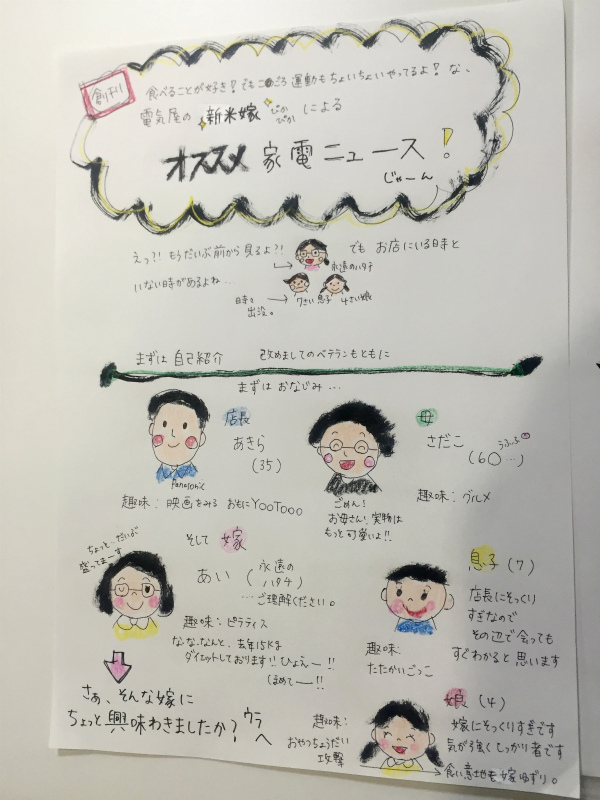 創刊
食べることが好き！でもこのごろ運動もちょいちょいやってるよ！な、
電気屋の 新米嫁 ぴかぴか による
オススメ 家電ニュース！
じゃーん
えっ?! もうだいぶ前から見るよ?!
永遠のハタチ
でも お店にいる日時と
いない時があるよね…
時々
出没。
7さい 息子
4さい娘
まずは 自己紹介 改めましてのベテランもともに
まずは おなじみ…
店長
あきら
(35)
Panasonic
趣味：映画をみる おもにYOOTOOO
母
さだこ
うふふ
(60…)
ごめん！
お母さん！実物は
もっと可愛いよ!!
趣味：グルメ
ちょっと、だいぶ
盛ってまーす
そして 嫁
あい (永遠の
ハタチ)
…ご理解ください。
趣味：ピラティス
な・な・なんと、去年15kg
ダイエットしております!! ひょえー!!
(ほめてー!!)
息子 (7)
店長にそっくり
すぎなので
その辺で会っても
すぐわかると思います
趣味：
たたかいごっこ
さぁ、そんな嫁に
ちょっと興味わきましたか？
ウラへ
娘 (4)
嫁にそっくりすぎです
気が強くしっかり者です
食い意地も嫁ゆずり。
趣味：
おやつちょうだい
攻撃